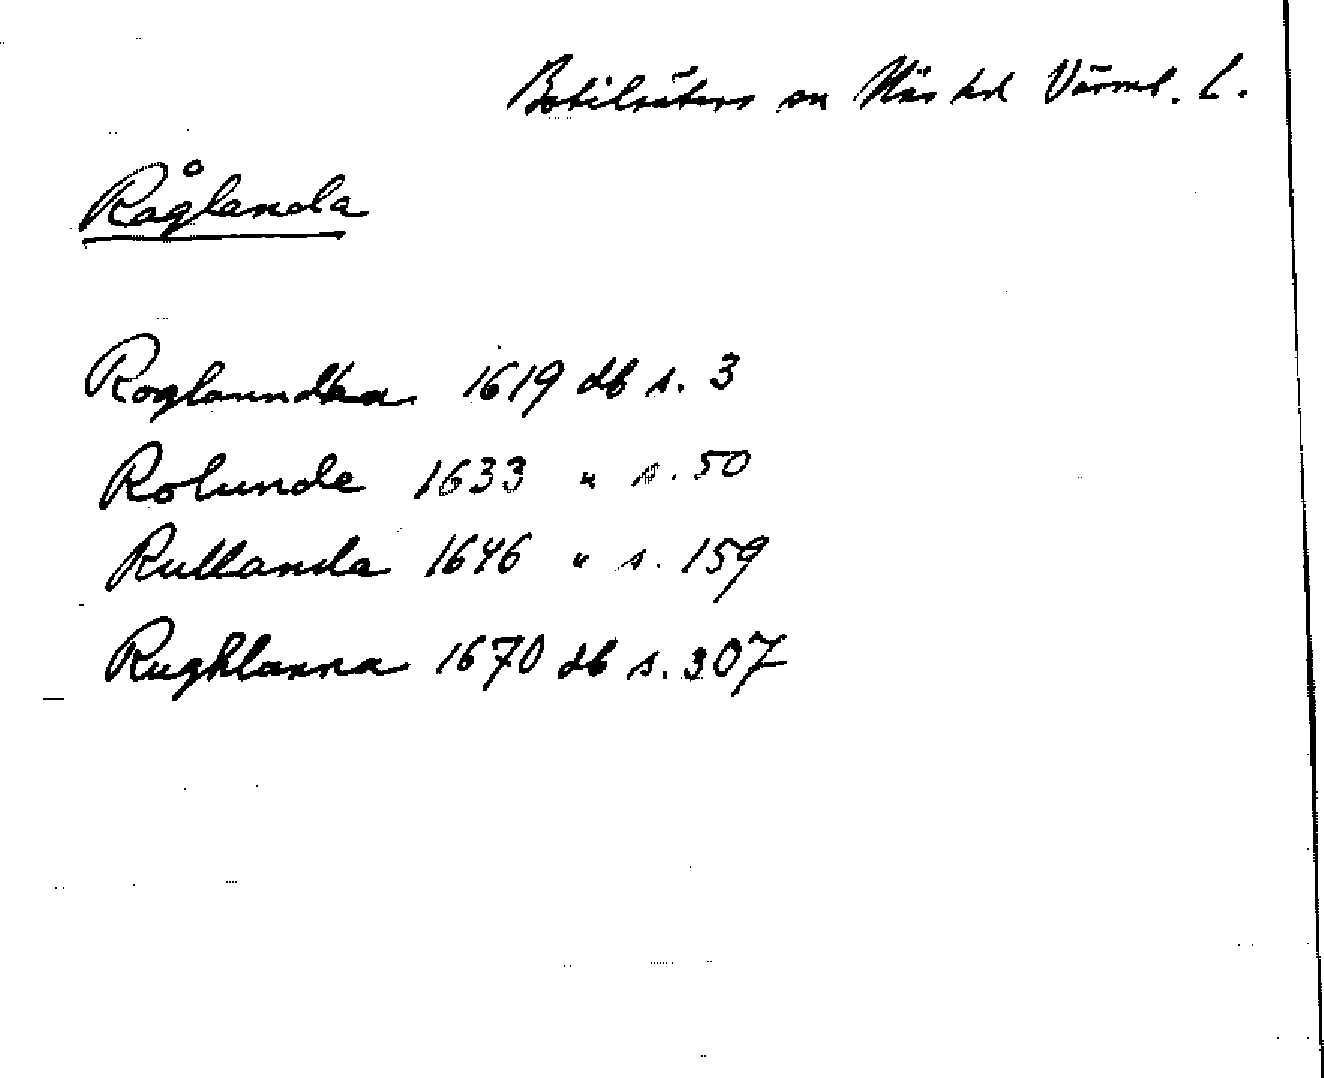 Botilsäters sn Näs hd Värml. L.
Råglanda
Roglanndha 1619 db s. 3
Rolunde 1633 " s. 50
Rullanda 1646 " s. 159
Rughlanna 1670 db s. 307